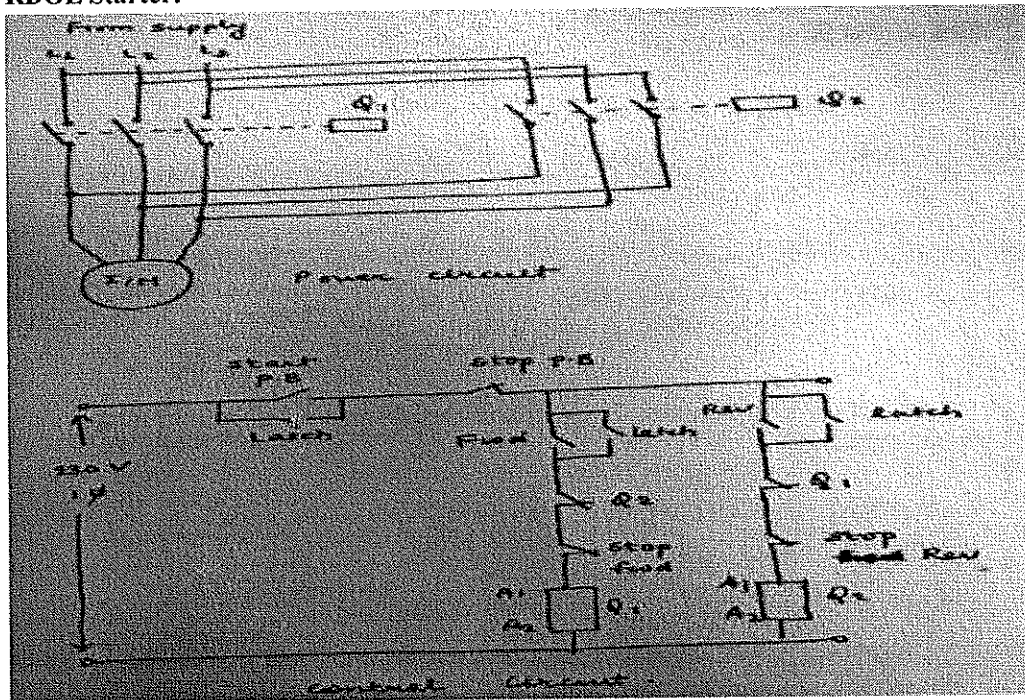 RDOL Starter:
From Supply
L1 L2 L3
Q1
Q2
I/M
Power circuit
Start
P.B
Stop P.B
Latch
Fwd
latch
Rev
latch
230 V
1 φ
Q2
Q1
Stop
Fwd
Stop
Rev
A1
A2
Q1
A1
A2
Q2
Control Circuit.